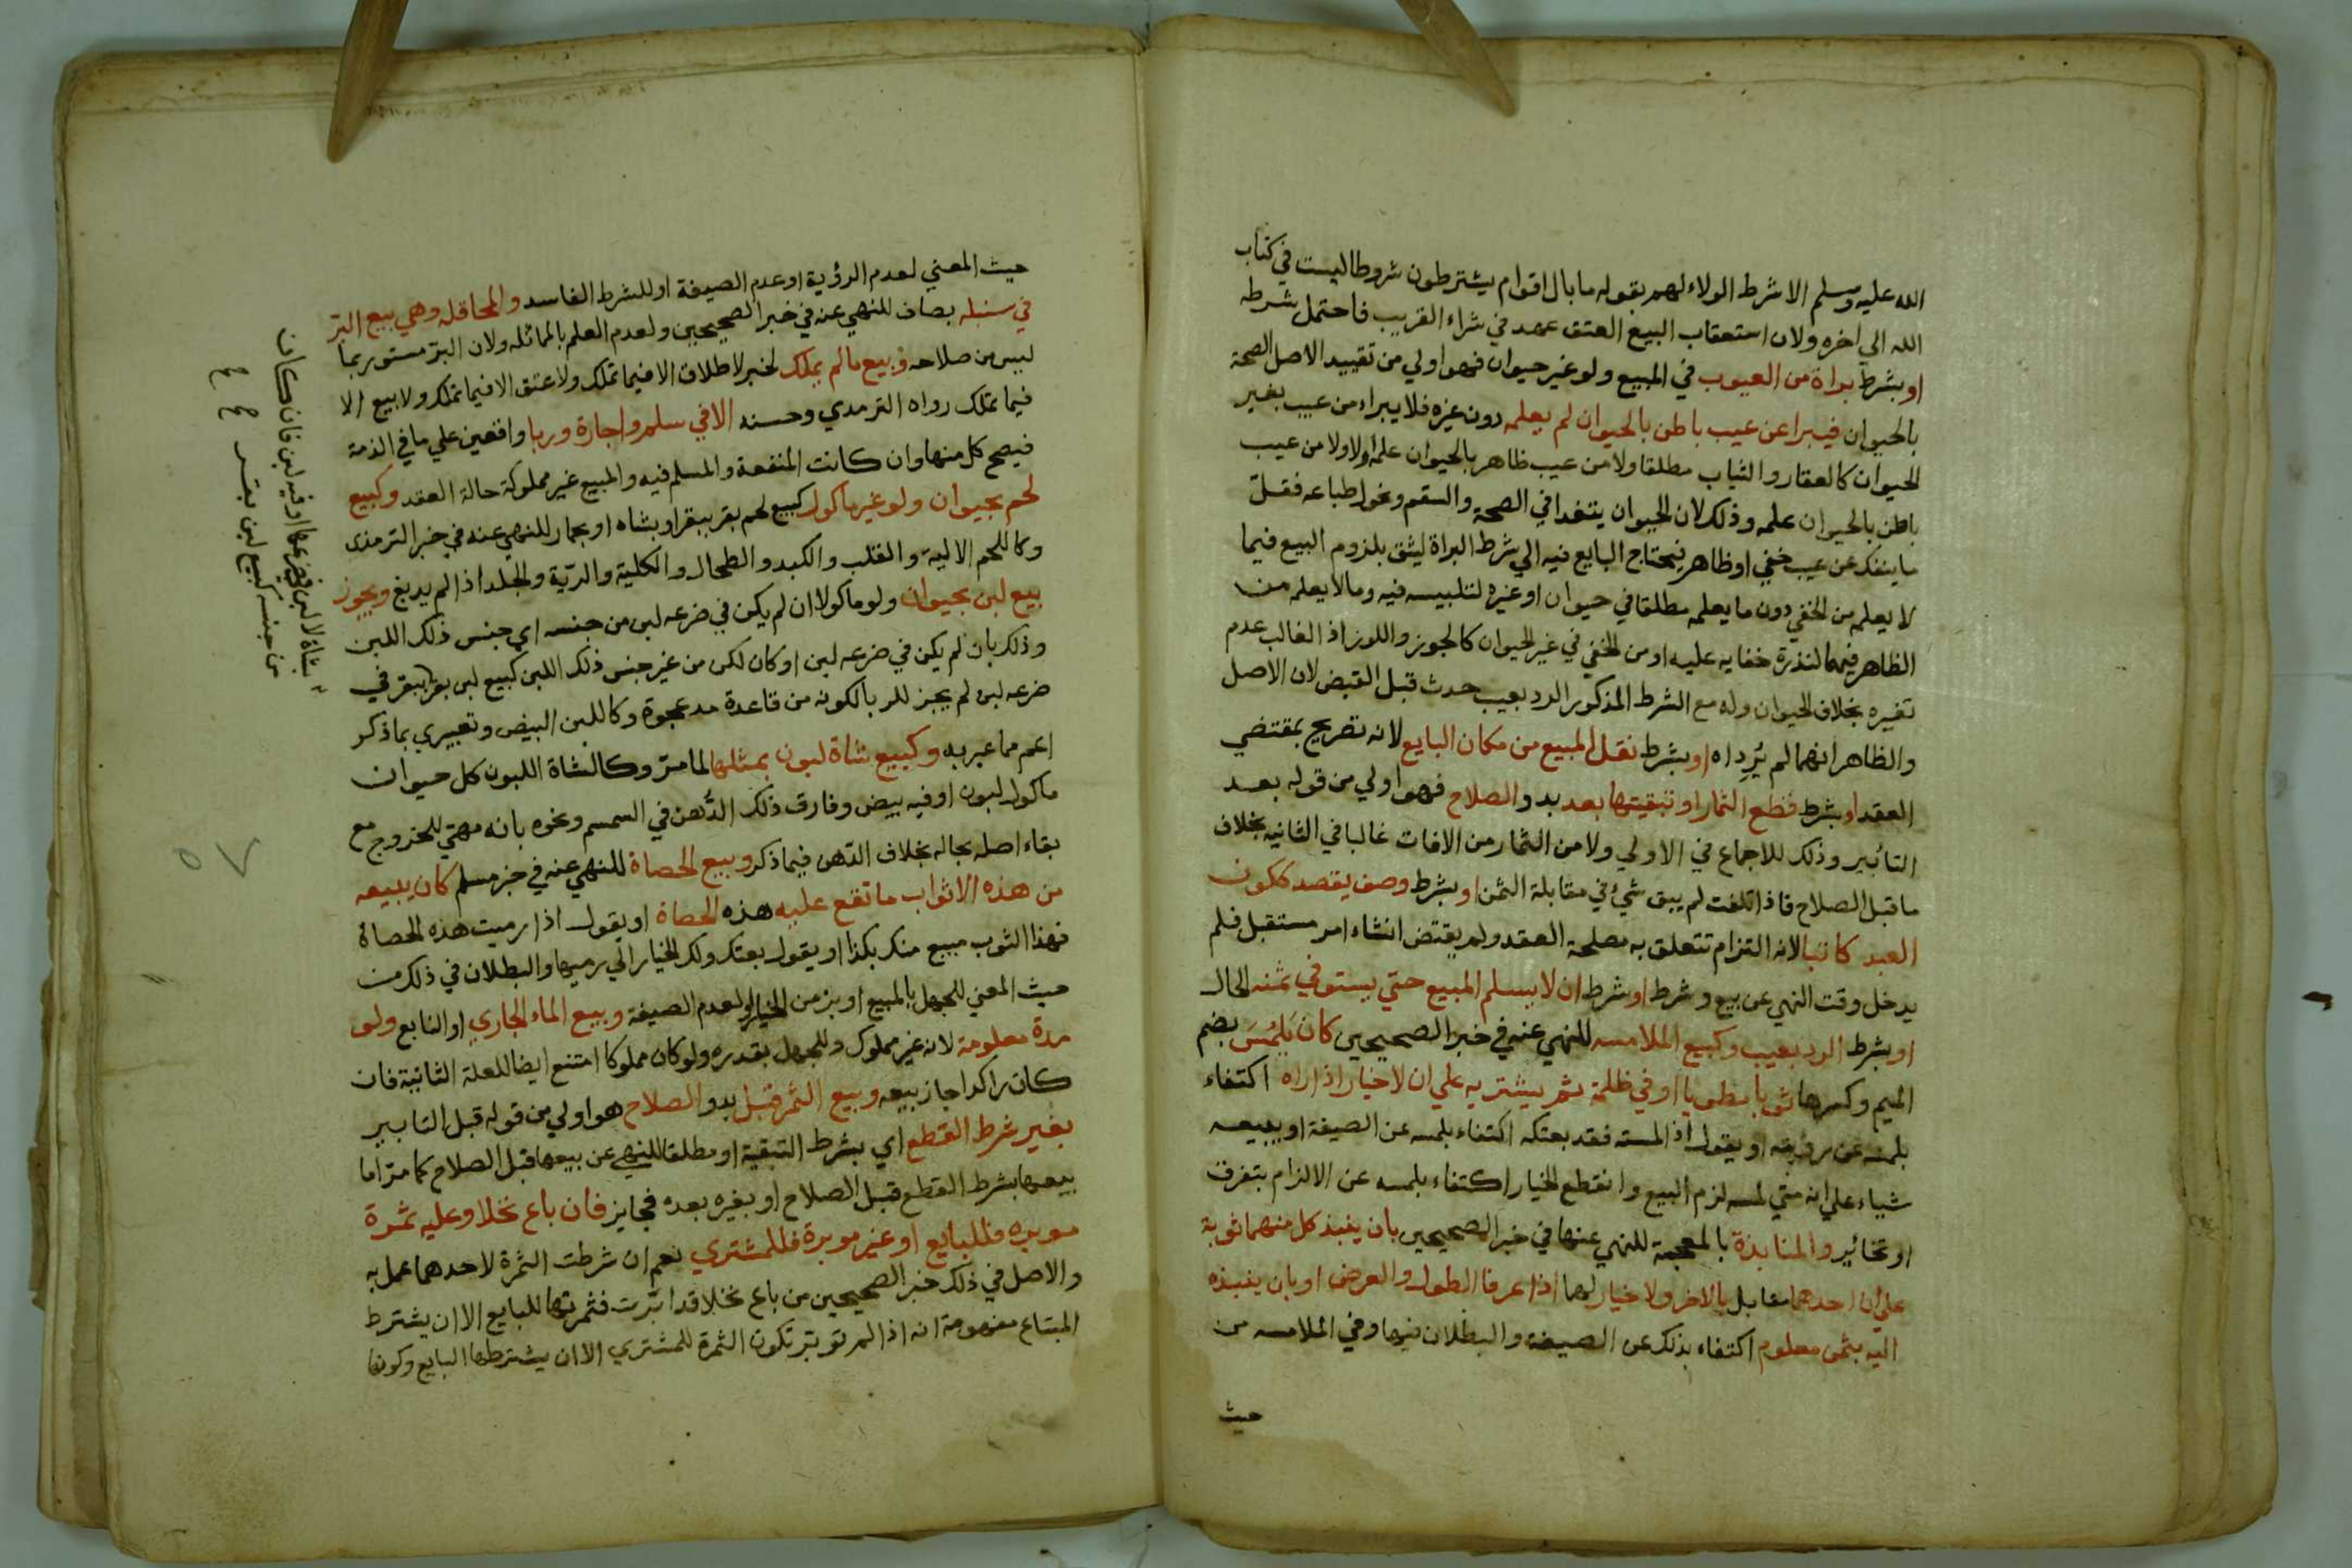 الله عليه وسلم الا شرط الولاء لهم بقوله ما بال اقوام يشترطون شروطا ليست في كتاب
الله الي اخره ولان استعقاب البيع العتق عهد في شراء القريب فاحتمل شرطه
او بشرط براة من العيوب في المبيع ولو غير حيوان فهو اولي من تقييد الاصل الصحة
بالحيوان فيبرا عن عيب باطن بالحيوان لم يعلمه دون غيره فلا يبراء من عيب بغير
الحيوان كالعقار والثياب مطلقا ولا من عيب ظاهر بالحيوان علمه اولا ولا من عيب
باطن بالحيوان علمه وذلك لان الحيوان يتغدا في الصحة والسقم وتحول طباعه فقلّ
ما ينفك عن عيب خفي او ظاهر فيحتاج البايع فيه الي شرط البراة ليثق بلزوم البيع فيما
لا يعلم من الخفي دون ما يعلمه مطلقا في حيوان او غيره لتلبيسه فيه وما لا يعلم من
الظاهر فيهما لندرة خفايه عليه او من الخفي في غير الحيوان كالجوز واللوز اذ الغالب عدم
تغيره بخلاف الحيوان وله مع الشرط المذكور الرد بعيب حدث قبل القبض لان الاصل
والظاهر انهما لم يُرِداه او بشرط نقل المبيع من مكان البايع لانه تصريح بمقتضي
العقد او بشرط قطع الثمار او تبقيتها بعد بدو الصلاح فهو اولي من قوله بعد
التأبير وذلك للاجماع في الاولي ولا من الثمار من الافات غالبا في الثانيه بخلاف
ما قبل الصلاح فاذا تلفت لم يبق شيء في مقابلة الثمن او بشرط وصف يقصد ككون
العبد كاتبا لانه التزام تتعلق به مصلحة العقد ولم يقتض انشاء امر مستقبل فلم
يدخل وقت النهي عن بيع وشرط او شرط ان لا يسلم المبيع حتي يستوفي ثمنه الحال
او بشرط الرد بعيب وكبيع الملامسه للنهي عنه في خبر الصحيحين كان يَلمُسَ بضم
الميم وكسرها ثوبا مطويا او في ظلمة ثم يشتريه علي ان لا خيار اذا راه اكتفاء
بلمسه عن رؤيته او يقول اذا لمسته فقد بعتكه اكتفاء بلمسه عن الصيغة او يبيعه
شياء علي انه متي لمسه لزم البيع وانقطع الخيار اكتفاء بلمسه عن الالزام بتفرق
او تخائير والمنابذة بالمعجمة للنهي عنها في خبر الصحيحين بان ينبذ كل منهما ثوبه
علي ان احدهما مقابل بالاخر ولا خيار لهما اذا عرفا الطول والعرض او بان ينبذه
اليه بثمن معلوم اكتفاء بذلك عن الصيغة والبطلان فيها وفي الملامسه من
حيث
حيث المعني لعدم الرؤية او عدم الصيغة او للشرط الفاسد والمحاقله وهي بيع البرّ
في سنبله بصاف للنهي عنه في خبر الصحيحين ولعدم العلم بالمماثله ولان البرّ مستور بما
ليس من صلاحه وبيع ما لم يملك لخبر لا طلاق الا فيما تملك ولا عتق الا فيما تملك ولا بيع الا
فيما تملك رواه الترمدي وحسنه الا في سلم واجارة وربا واقعين علي ما في الذمة
فيصح كل منها وان كانت المنفعة والمسلم فيه والمبيع غير مملوكة حالة العقد وكبيع
لحم بحيوان ولو غير ماكول كبيع لحم بقر ببقر او بشاه او بحمار للنهي عنه في خبر الترمذي
وكاللحم الالية والقلب والكبد والطحال والكلية والريّة والجلد اذا لم يدبغ ويجوز
بيع لبن بحيوان ولو ماكولا ان لم يكن في ضرعه لبن من جنسه اي جنس ذلك اللبن
وذلك بان لم يكن في ضرعه لبن او كان لكن من غير جنس ذلك اللبن كبيع لبن بقر ببقر في
ضرعه لبن لم يجز للربا لكونه من قاعدة مد عجوة وكاللبن البيض وتعبيري بما ذكر
اعم مما عبر به وكبيع شاة لبون بمثلها لما مرّ وكالشاة اللبون كل حيوان
ماكول لبون او فيه بيض وفارق ذلك الدُّهن في السمسم ونحوه بانه مهتي للخروج مع
بقاء اصله بحاله بخلاف الدّهن فيما ذكر وبيع الحصاة للنهي عنه في خبر مسلم كان يبيعه
من هذه الاثواب ما تقع عليه هذه الحصاة او يقول اذا رميت هذه الحصاة
فهذا الثوب مبيع منك بكذا او يقول بعتك ولك الخيار الي رميها والبطلان في ذلك من
حيث المعني للجهل بالمبيع او بزمن الخيار او لعدم الصيغة وبيع الماء الجاري او النابع ولو
مدة معلومة لانه غير مملوك وللجهل بقدره ولو كان مملوكا امتنع ايضا للعلة الثانية فان
كان راكدا جاز بيعه وبيع الثمر قبل بدو الصلاح هو اولي من قوله قبل التابير
بغير شرط القطع اي بشرط التبقية او مطلقا للنهي عن بيعها قبل الصلاح كما مرّ اما
بيعها بشرط القطع قبل الصلاح او بغيره بعده فجايز فان باع نخلا وعليه ثمرة
موبره فللبايع او غير موبرة فللمشتري نعم ان شرطت الثمرة لاحدهما عمل به
والاصل في ذلك خبر الصحيحين من باع نخلا قد ابّرت فثمرتها للبايع الا ان يشترط
المبتاع مفهومة انه اذا لم توبر تكون الثمرة للمشتري الا ان يشترطها البايع وكونها
بشاة لا لبن في ضرعها او فيه لبن فان كان
من جنسه كبيع لبن بقر